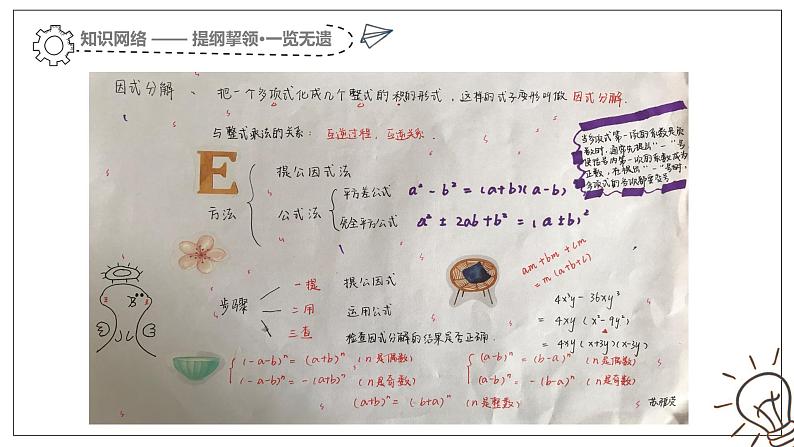 知识网络 —— 提纲挈领•一览无遗
因式分解、 把一个多项式化成几个整式的积的形式，这样的式子变形叫做 因式分解.
与整式乘法的关系：互逆过程，互逆关系.
当多项式第一项的系数是负
数时，通常先提出"－"号
使括号内第一项的系数成为
正数，在提出"－"号时，
多项式的各项都要变号
E
方法
提公因式法
公式法
平方差公式 a² - b² = (a+b)(a-b)
完全平方公式 a² ± 2ab + b² = (a ± b)²
am + bm + cm
= m (a+b+c)
步骤
一提 提公因式
二用 运用公式
三查 检查因式分解的结果是否正确.
4x³y - 36xy³
= 4xy (x² - 9y²)
= 4xy (x+3y)(x-3y)
(-a-b)ⁿ = (a+b)ⁿ (n是偶数)
(-a-b)ⁿ = -(a+b)ⁿ (n是奇数)
(a-b)ⁿ = (b-a)ⁿ (n是偶数)
(a-b)ⁿ = -(b-a)ⁿ (n是奇数)
(a+b)ⁿ = (b+a)ⁿ (n是整数)